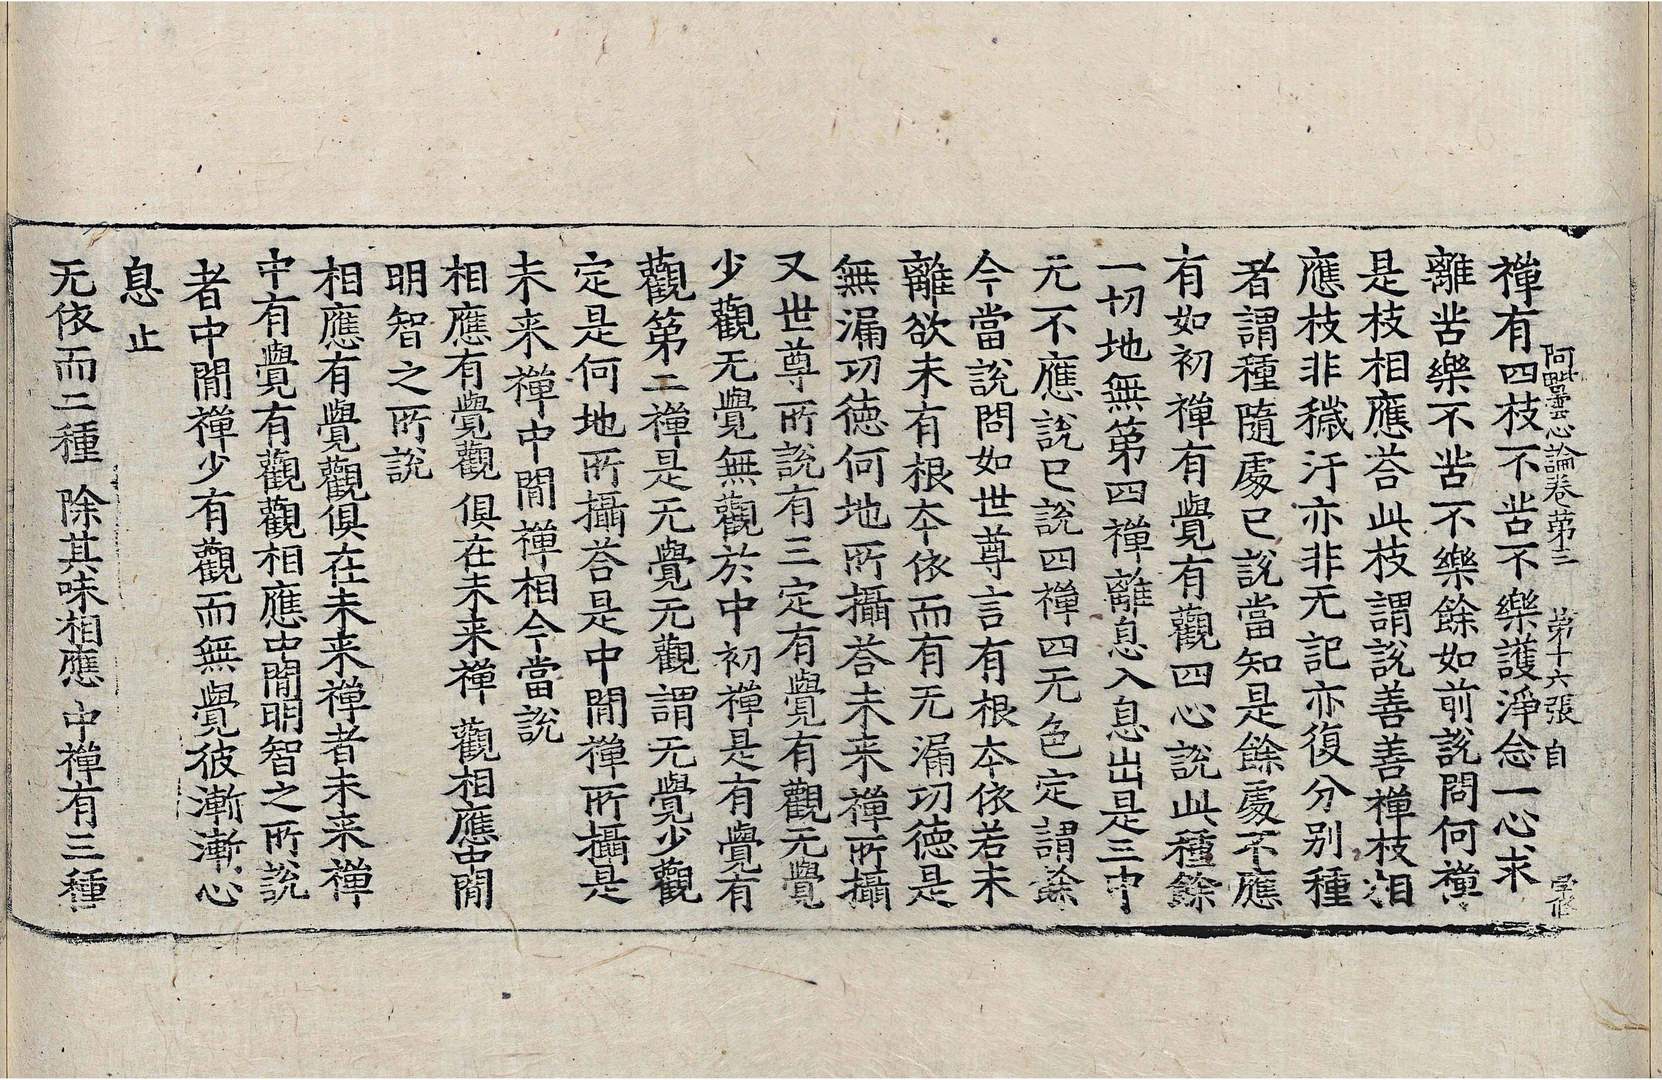 阿毗曇心論卷苐三 苐十六張 自
禪有四枝不苦不樂護淨念一心求
離苦樂不苦不樂餘如前説問何禪
是枝相應荅此枝謂説善善禪枝相
應枝非穢汙亦非无記亦復分別種
者謂種隨處已說當知是餘處不應
有如初禪有覺有觀四心說此種餘
一切地無第四禪離息入息出是三中
元不應說已說四禪四无色定謂餘
今當說問如世尊言有根本依若未
離欲未有根本依而有无漏功德是
無漏功德何地所攝荅未来禪所攝
又世尊所說有三定有覺有觀无覺
少觀无覺無觀於中初禪是有覺有
觀第二禪是无覺无觀謂无覺少觀
定是何地所攝荅是中間禪所攝是
未来禪中間禪相今當說
相應有覺觀 俱在未来禪 觀相應中間
明智之所説
相應有覺觀俱在未来禪者未来禪
中有覺有觀觀相應中間明智之所說
者中間禪少有觀而無覺彼漸漸心
息止
无依而二種 除其味相應 中禪有三種